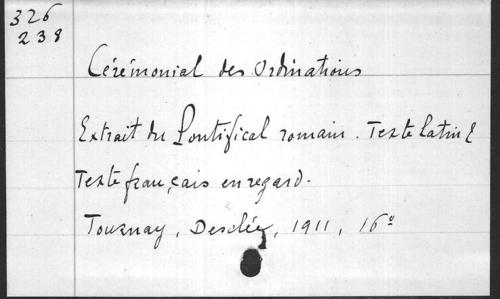 326
238
Cérémonial des Ordinations
Extrait du Pontifical romain. Texte latin &
Texte français en regard.
Tournay, Desclée, 1911, 16°